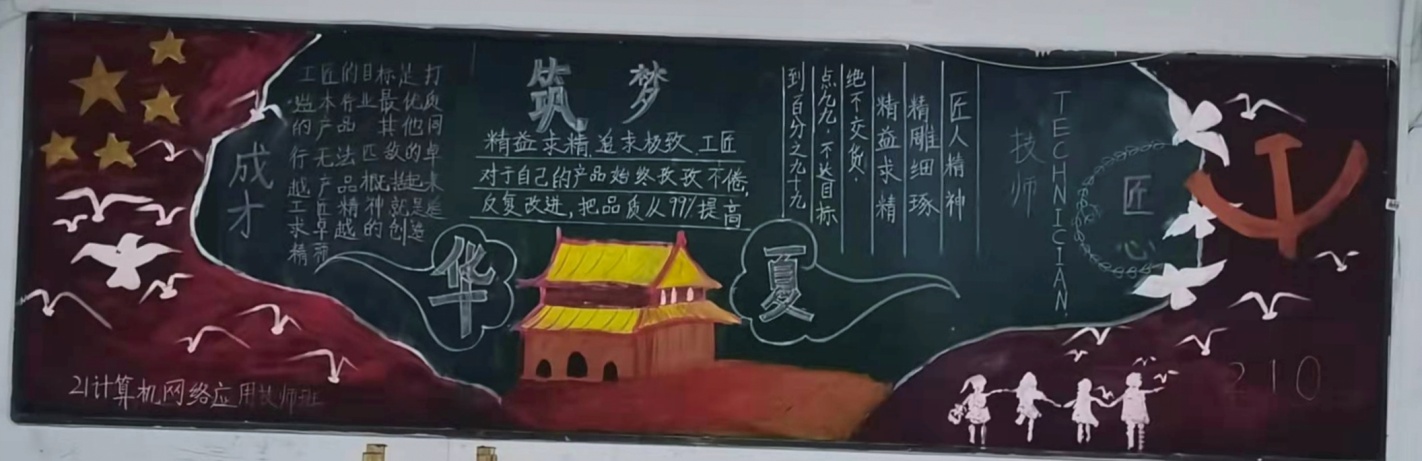 筑梦
工匠的目标是打
造本行业最优质
的产品 其他同
行无法匹敌的卓
越产品概括起来
工匠精神就是追
求卓越的创造
精神
成才
精益求精,追求极致,工匠
对于自己的产品始终孜孜不倦,
反复改进,把品质从99%提高
匠人精神
精雕细琢
精益求精
绝不交货.
点九九.不达目标
到百分之九十九
华
夏
TECHNICIAN.
技师
匠心
21计算机网络应用技师班
210